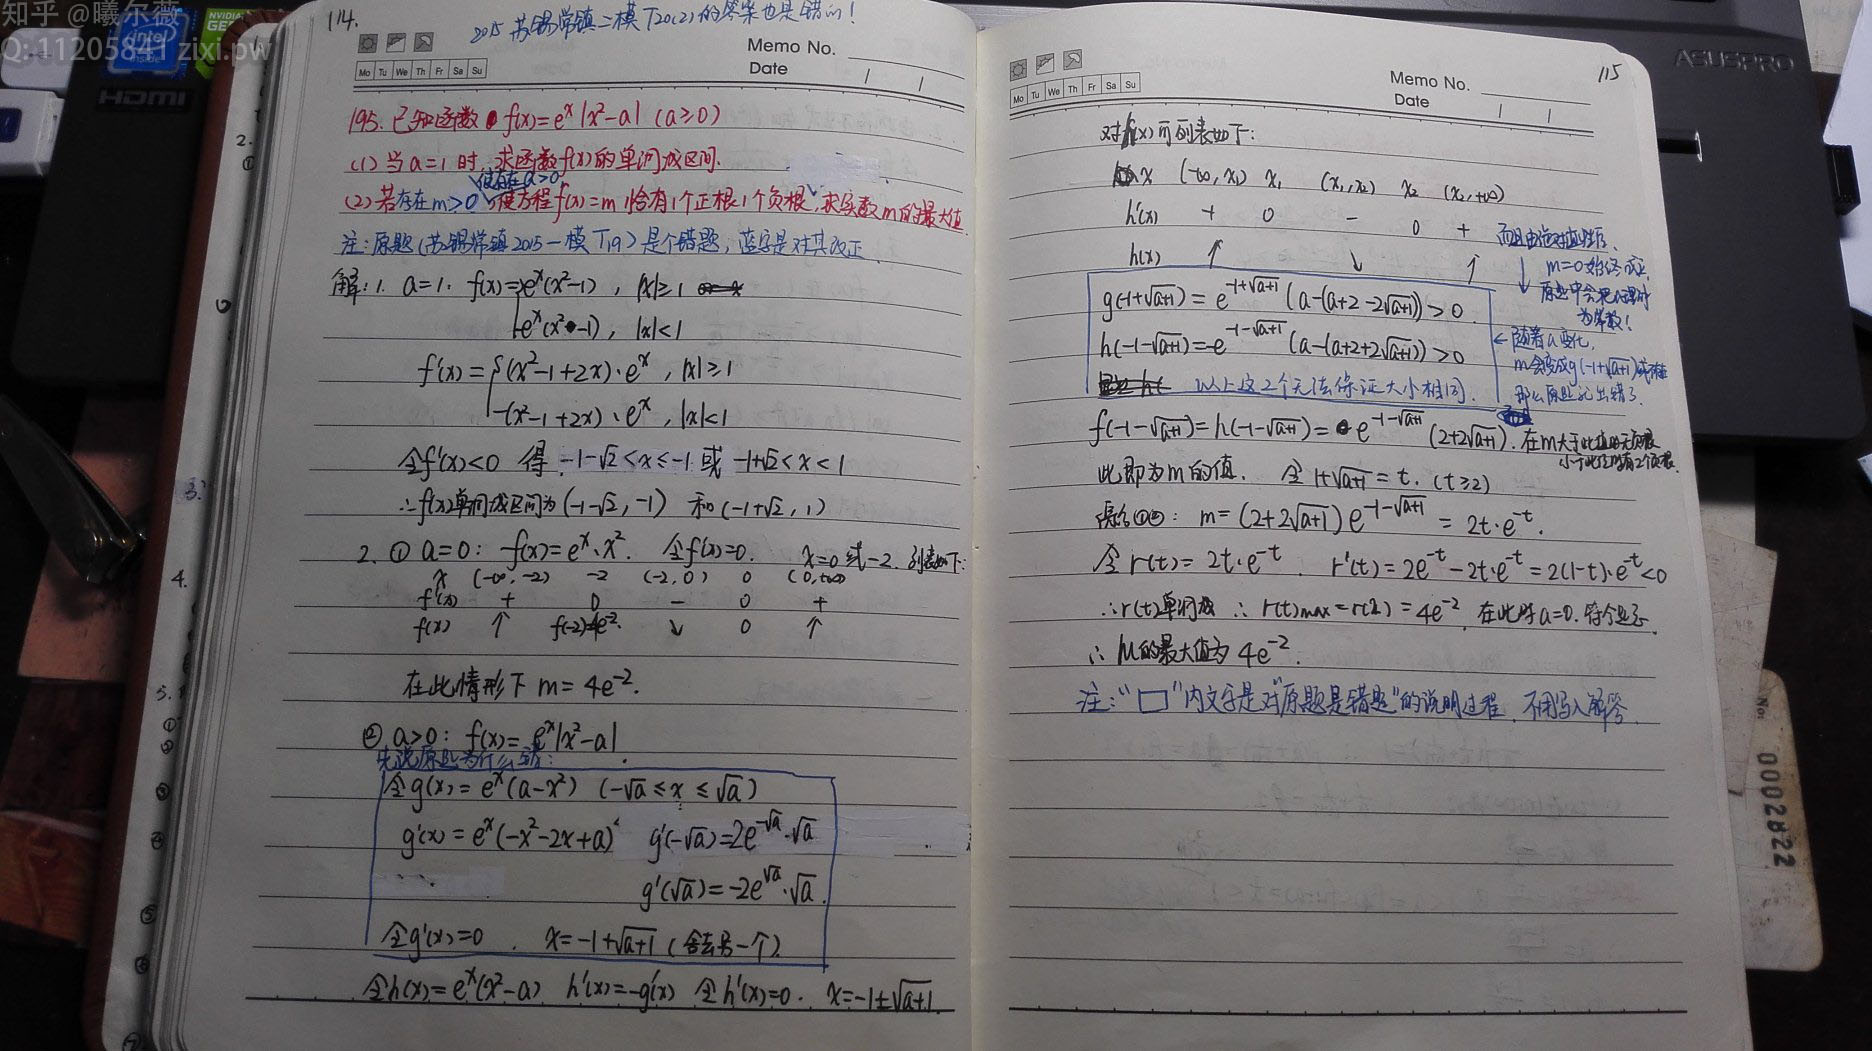 知乎 @曦尔薇
Q: 11205841 zixi.pw
intel
HDMI
NVIDIA
114.
2015 苏锡常镇二模 T20(2)的答案也是错的!
Memo No.
Mo Tu We Th Fr Sa Su
Date
195. 已知函数 f(x)=eˣ|x²-a| (a≥0)
(1) 当 a=1 时, 求函数f(x)的单调减区间.
使存在a>0
(2) 若存在m>0, 使方程f(x)=m 恰有1个正根1个负根, 求实数m的最大值.
注: 原题(苏锡常镇2015一模T19)是个错题, 蓝字是对其改正.
解: 1. a=1. f(x)={eˣ(x²-1), |x|≥1
-eˣ(x²-1), |x|<1
f'(x)={(x²-1+2x)·eˣ, |x|≥1
-(x²-1+2x)·eˣ, |x|<1
令f'(x)<0 得. -1-√2<x≤-1 或 -1+√2<x<1
∴f(x)单调减区间为(-1-√2, -1) 和(-1+√2, 1)
2. ① a=0: f(x)=eˣ·x². 令f'(x)=0. x=0或-2. 列表如下:
x (-∞,-2) -2 (-2,0) 0 (0,+∞)
f'(x) + 0 - 0 +
f(x) ↑ f(-2)=4e⁻². ↓ 0 ↑
在此情形下 m=4e⁻².
② a>0: f(x)=eˣ|x²-a|.
先说原题为什么错:
令g(x)=eˣ(a-x²) (-√a≤x≤√a)
g'(x)=eˣ(-x²-2x+a) g'(-√a)=2e^(-√a)·√a
g'(√a)=-2e^(√a)·√a.
令g'(x)=0. x=-1+√(a+1) (舍去另一个).
令h(x)=eˣ(x²-a) h'(x)=-g'(x) 令h'(x)=0. x=-1±√(a+1).
ASUSPRO
115
Memo No.
Mo Tu We Th Fr Sa Su
Date
对h(x)可列表如下:
x (-∞,x₁) x₁ (x₁,x₂) x₂ (x₂,+∞)
h'(x) + 0 - 0 +
h(x) ↑ ↓ ↑
m=0始终成立.
g(-1+√(a+1))=e^(-1+√(a+1)) (a-(a+2-2√(a+1)))>0.
h(-1-√(a+1))=-e^(-1-√(a+1)) (a-(a+2+2√(a+1)))>0
以上这2个无法保证大小相同.
← 随着a变化,
m会变成g(-1+√(a+1))
那么原题就出错了.
f(-1-√(a+1))=h(-1-√(a+1))=e^(-1-√(a+1)) (2+2√(a+1)). 在m大于此值时无负根
小于此值时有2个负根.
此即为m的值. 令1+√(a+1)=t. (t≥2)
综合①②: m=(2+2√(a+1))e^(-1-√(a+1))=2t·e⁻ᵗ.
令r(t)=2t·e⁻ᵗ. r'(t)=2e⁻ᵗ-2t·e⁻ᵗ=2(1-t)·e⁻ᵗ<0
∴r(t)单调减 ∴r(t)max=r(2)=4e⁻². 在此时a=0. 符合题意.
∴m的最大值为 4e⁻².
注: "□"内文字是对"原题是错题"的说明过程, 不用写入解答.
No:
0002822